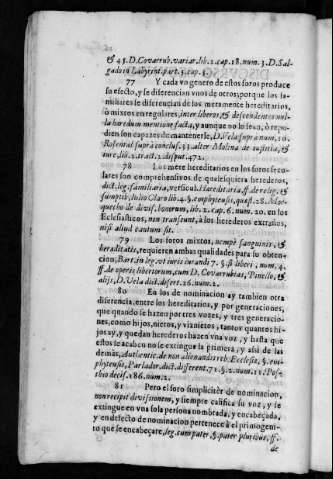 & 45. D. Covarrub. variar. lib. 2. cap. 18. num. 3. D. Sal-
gado in Labyrint. part. 3. cap. 3.
77 Y cada vn genero de estos foros produce
su efecto, y se diferencian vnos de otros, porque los fa-
miliares se diferencian de los meramente hereditarios,
ò mixtos en regulares, inter liberos, & descendentes nul-
la hæredum mentione facta, y aunque no lo sean, ò ten-
drèn son capaces de mantenerle, D. Vela suprà num. 20.
Rosental suprà conclus. 51. alter Molina de iustitia, &
iure, lib. 2. tract. 2. disput. 472.
78 Los mere hereditarios en los foros secu-
lares son comprehensivos de qualesquiera herederos,
dict. leg. familiaria, versicul. Hæreditaria ff. de relig. &
sumptib. Iulio Claro lib. 4. §. emphyteusis, quæst. 28. Mol
quecho de divis. bonorum, lib. 2. cap. 6. num. 20. en los
Eclesiasticos, non transeunt, à los herederos extraños,
nisi aliud cautum sit.
79 Los foros mixtos, nempè sanguinis, &
hæreditatis, requieren ambas qualidades para su obten-
cion, Bart. in leg. vt iuris iurandi 7. §. si liberi, num. 4.
ff. de operis libertorum, cum D. Covarrubias, Pinello, &
alijs, D. Vela dict. disert. 26. num. 2.
80 En los de nominacion ay tambien otra
diferencia, entre los hereditarios, y por generaciones,
que quando se hazen por tres vozes, y tres generacio-
nes, como hijos, nietos, y viznietos, tantos quantos hi-
jos ay, y quedan herederos hazen vna voz, y hasta que
estos se acaben no se extingue la primera, y assi de las
demàs, Authentic. de non alienandis reb. Ecclesiæ, §. em-
phyteusis, Parlador. dict. different. 71. §. 2. num. 11. Pos-
thio decis. 186. num. 2.
81 Pero el foro simpliciter de nominacion,
non recipit divisionem, y siempre califica su voz, y se
extingue en vna sola persona nombrada, y encabeçada,
y en defecto de nominacion pertenece à el primogeni-
to que se encabeçare, leg. cum pater, §. pater pluribus, ff.
de